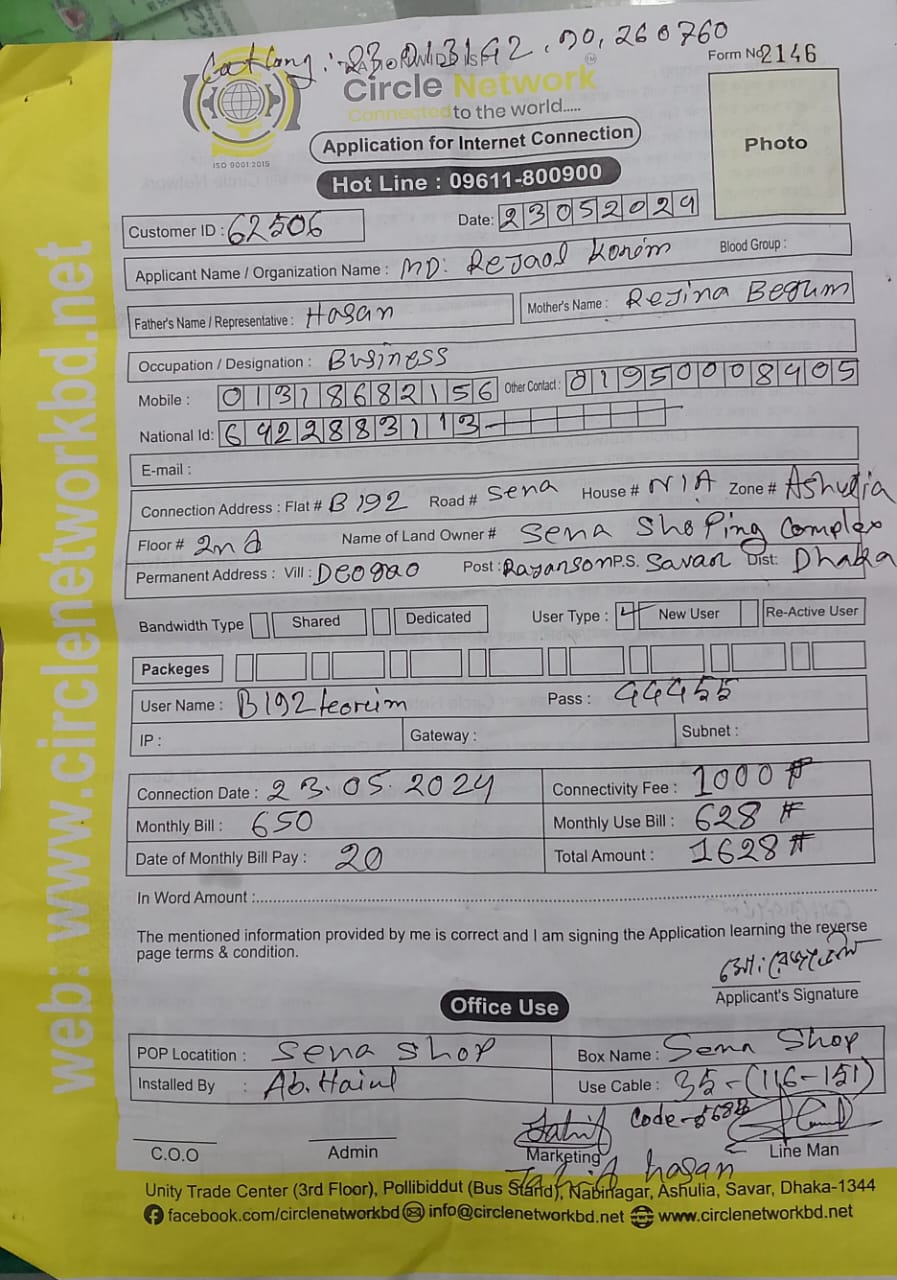 Cat Long : 23.
90, 260760
Form No 2146
Circle Network
Connected to the world.....
ISO 9001:2015
Application for Internet Connection
Photo
Hot Line : 09611-800900
Customer ID : 62506 Date: 23052024
Applicant Name / Organization Name : MD: Rejaol Korim Blood Group :
Father's Name / Representative : Hasan Mother's Name : Rejina Begum
Occupation / Designation : Business
Mobile : 01318682156 Other Contact : 01950008405
National Id: 6422883113
E-mail :
Connection Address : Flat # B192 Road # Sena House # N/A Zone # Ashulia
Floor # 2nd Name of Land Owner # Sena Shoping Complex
Permanent Address : Vill : Deogao Post : Rayanson P.S. Savar Dist: Dhaka
Bandwidth Type Shared Dedicated User Type : New User Re-Active User
Packeges
User Name : B192 Pass : 44455
IP : Gateway : Subnet :
Connection Date : 23.05.2024 Connectivity Fee : 1000
Monthly Bill : 650 Monthly Use Bill : 628 #
Date of Monthly Bill Pay : 20 Total Amount : 1628 #
In Word Amount :
The mentioned information provided by me is correct and I am signing the Application learning the reverse
page terms & condition.
Applicant's Signature
Office Use
POP Locatition : Sena Shop Box Name : Sena Shop
Installed By : Ab. Use Cable : 35-(116-151)
Code-
C.O.O Admin Marketing Line Man
hasan
Unity Trade Center (3rd Floor), Pollibiddut (Bus Stand), Nabinagar, Ashulia, Savar, Dhaka-1344
facebook.com/circlenetworkbd info@circlenetworkbd.net www.circlenetworkbd.net
web: www.circlenetworkbd.net